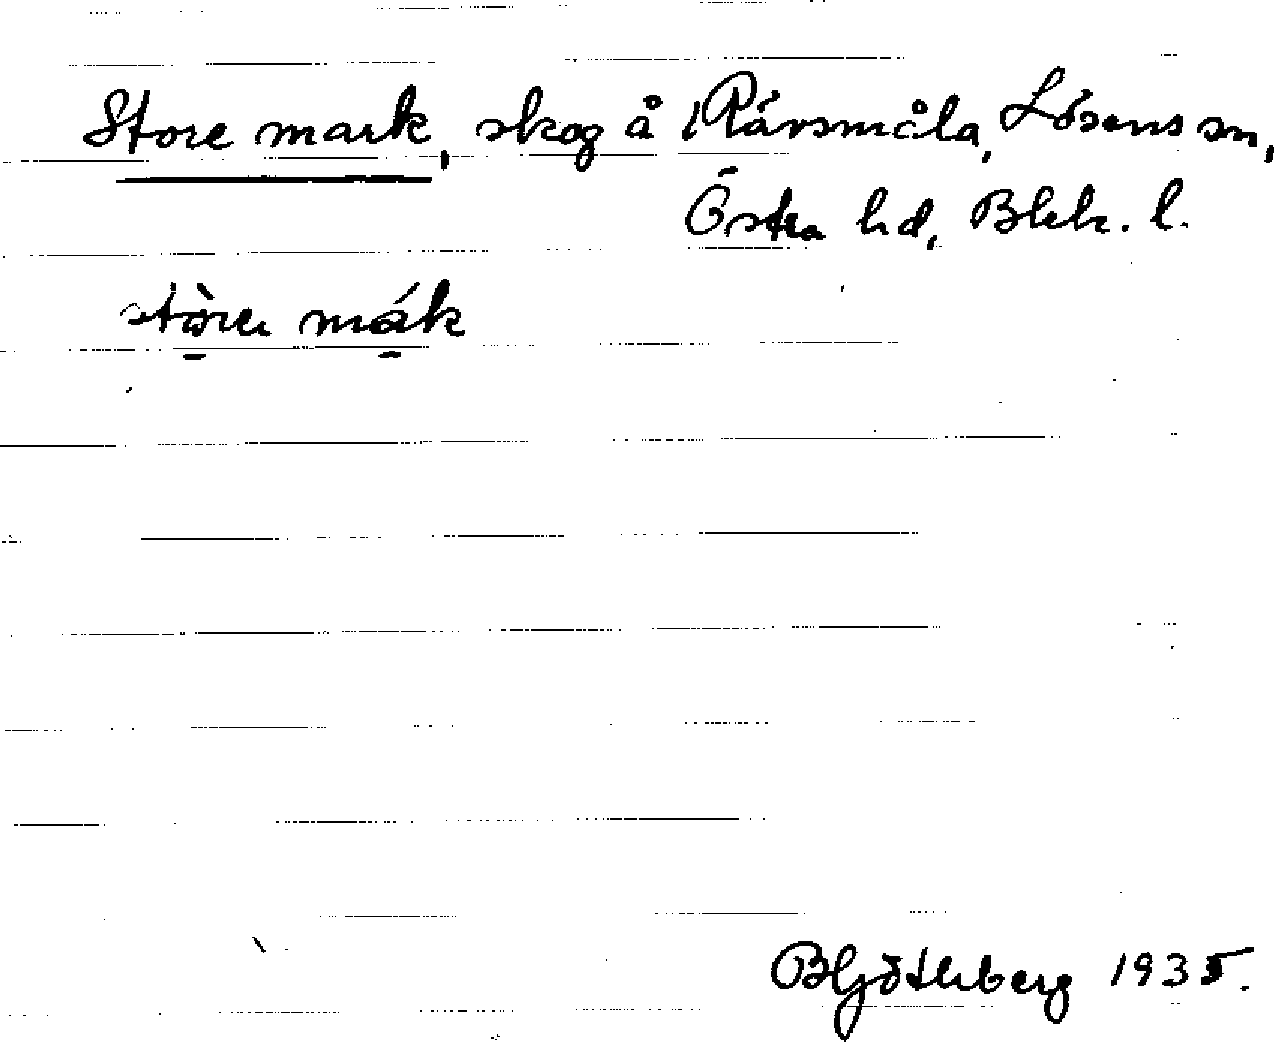 Store mark, skog å Rävsmåla, Lösens sn,
Östra hd, Blek. l.
stòrə mák
BGötlberg 1935.